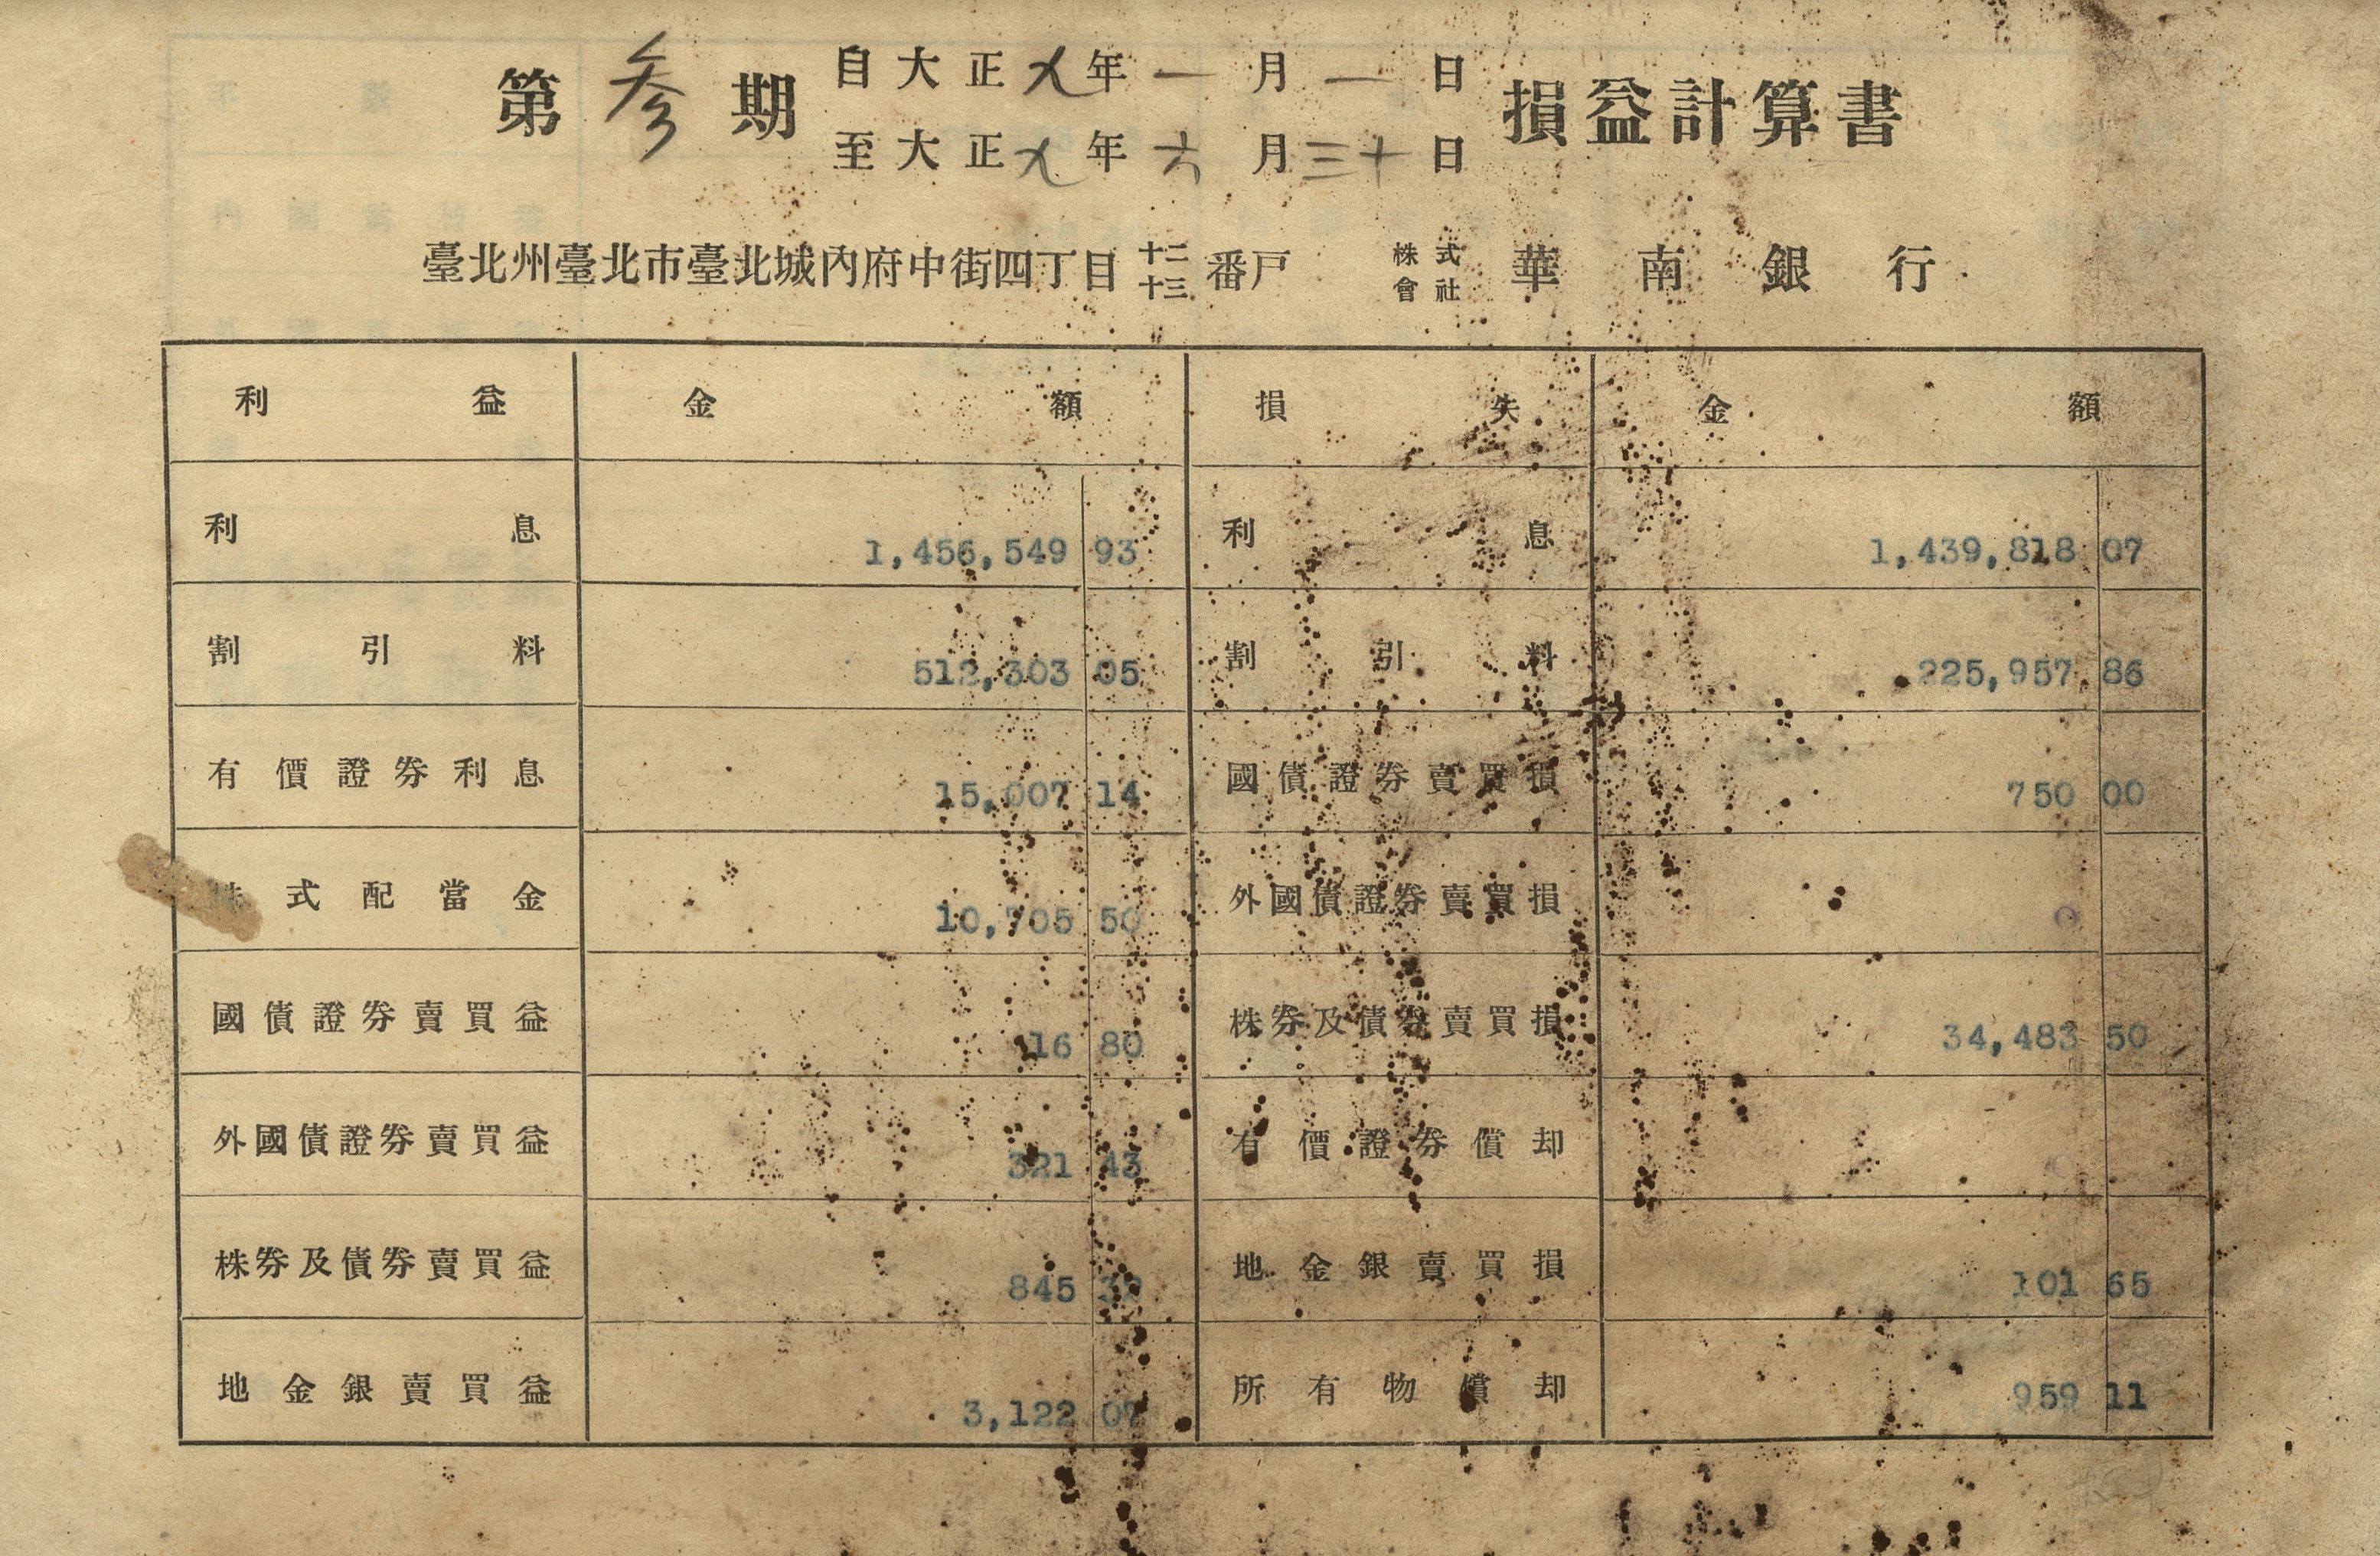 第 参 期 自大正九年一月一日 至大正九年六月三十日 損益計算書
臺北州臺北市臺北城內府中街四丁目十二十三番戶 株式會社 華南銀行
利益 金額 損失 金額
利息 1,456,549 93 利息 1,439,818 07
割引料 512,303 05 割引料 225,957 86
有價證券利息 15,007 14 國債證券賣買損 750 00
株式配當金 10,705 50 外國債證券賣買損 0
國債證券賣買益 16 80 株券及債券賣買損 34,483 50
外國債證券賣買益 321 43 有價證券償却
株券及債券賣買益 845 地金銀賣買損 101 65
地金銀賣買益 3,122 07 所有物償却 959 11